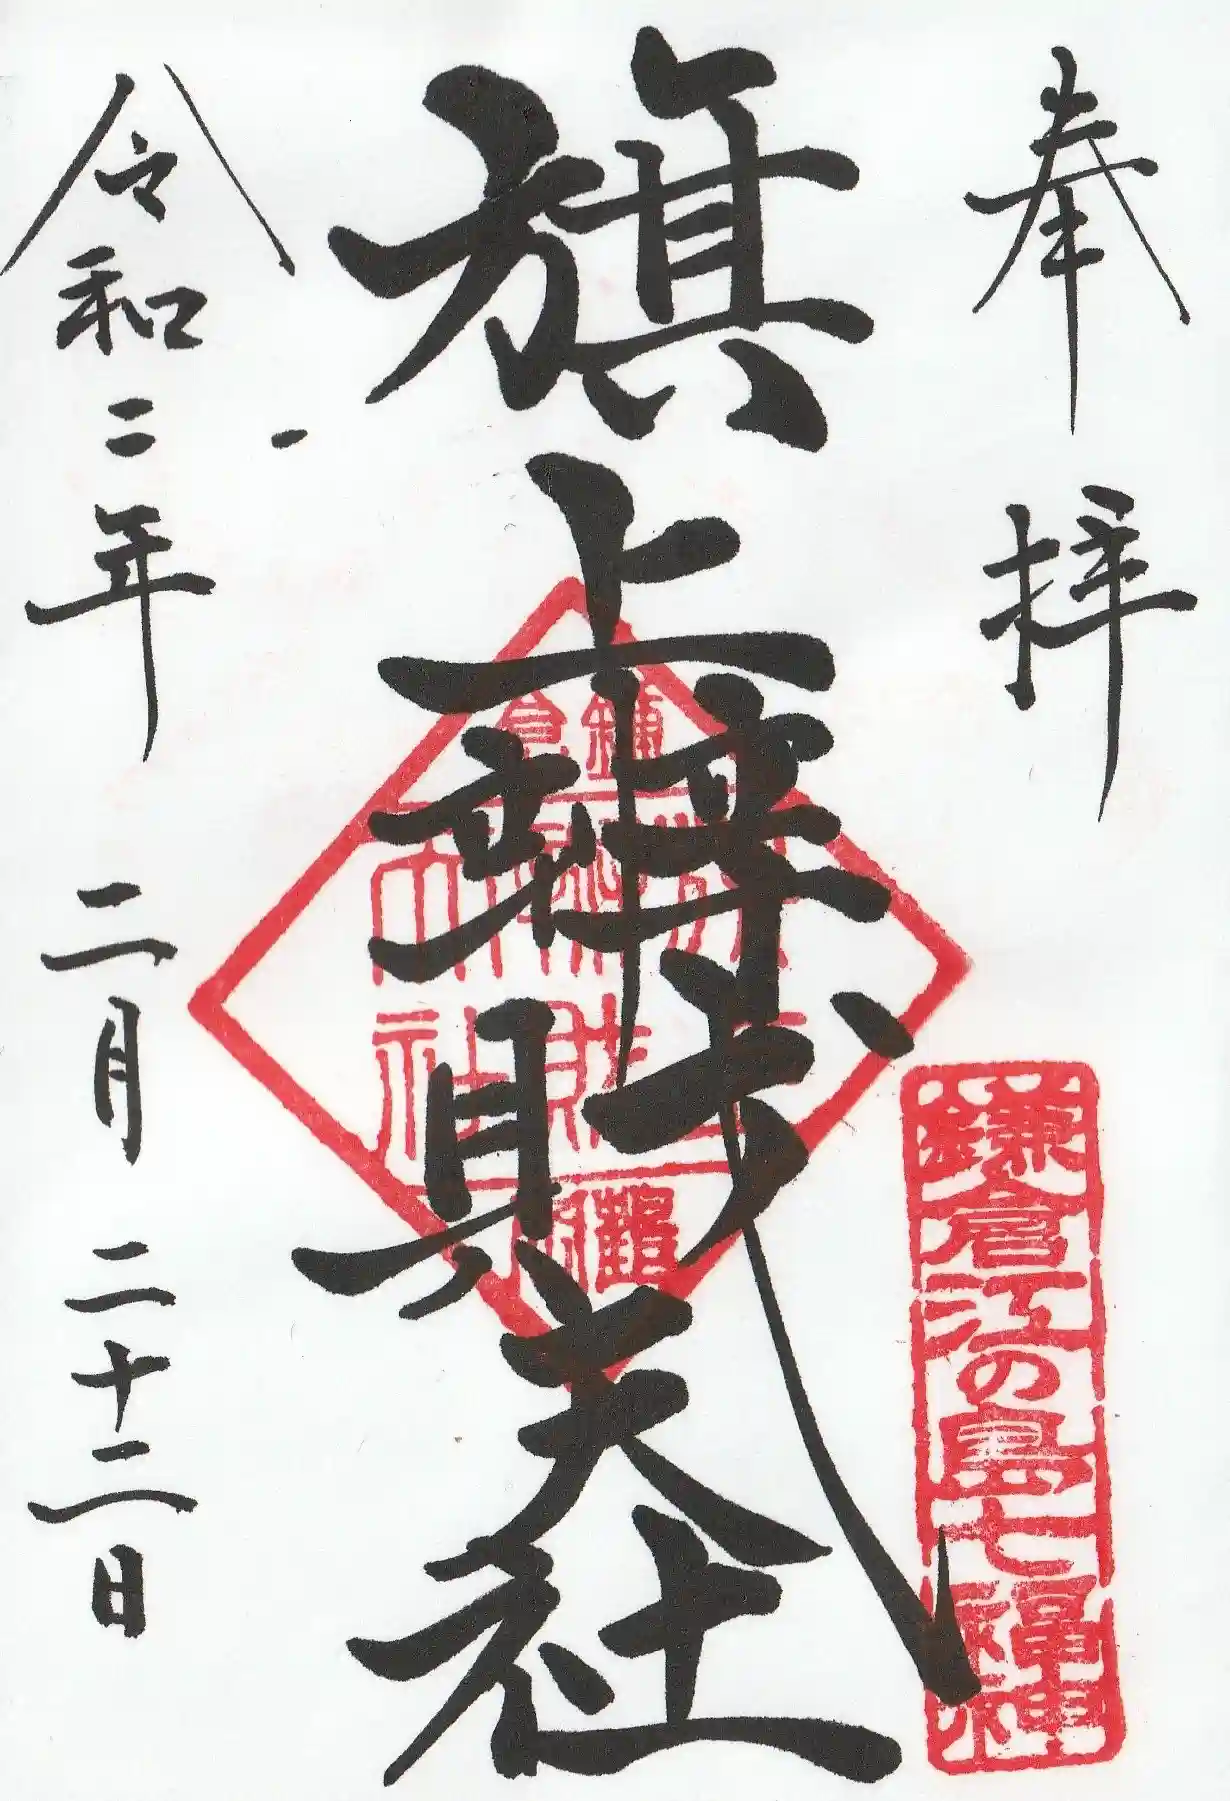 奉拝
鎌倉江の島七福神
旗上辨財天社
鎌倉
令和二年二月二十二日